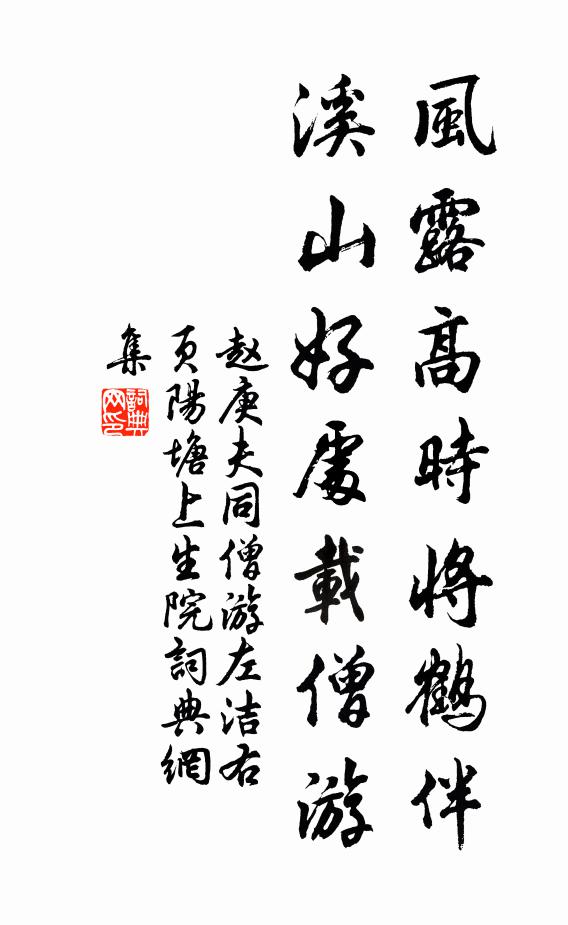 風露高時將鶴伴
溪山好處載僧游
赵庚夫同僧游左洁右
页陽塘上生院詞典網
集
詞典網印